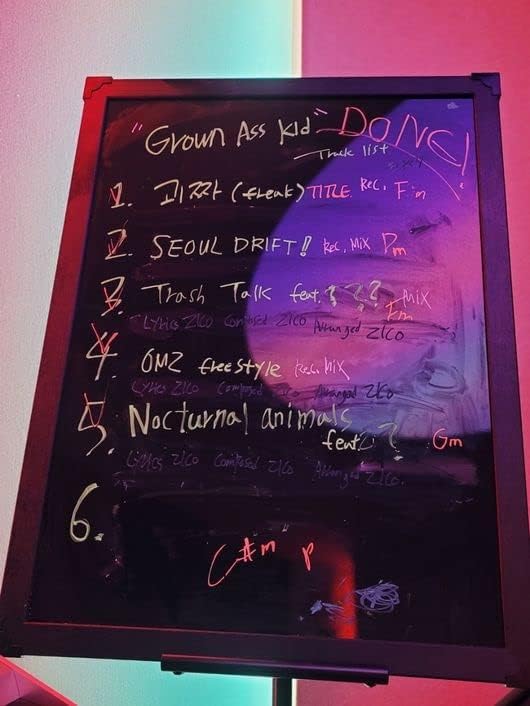 "Grown Ass Kid" DONE!
Track list
1. 괴짜 (freak) TITLE Rec, Fm
2. SEOUL DRIFT! Rec, Mix Dm
3. Trash Talk feat. ? ? ? Mix
Fm
Lyrics ZICO Composed ZICO Arranged ZICO
4. OMZ freestyle Rec, Mix
Lyrics ZICO Composed ZICO Arranged ZICO
5. Nocturnal animals
feat. ? Gm
Lyrics ZICO Composed ZICO Arranged ZICO.
6.
C#m P